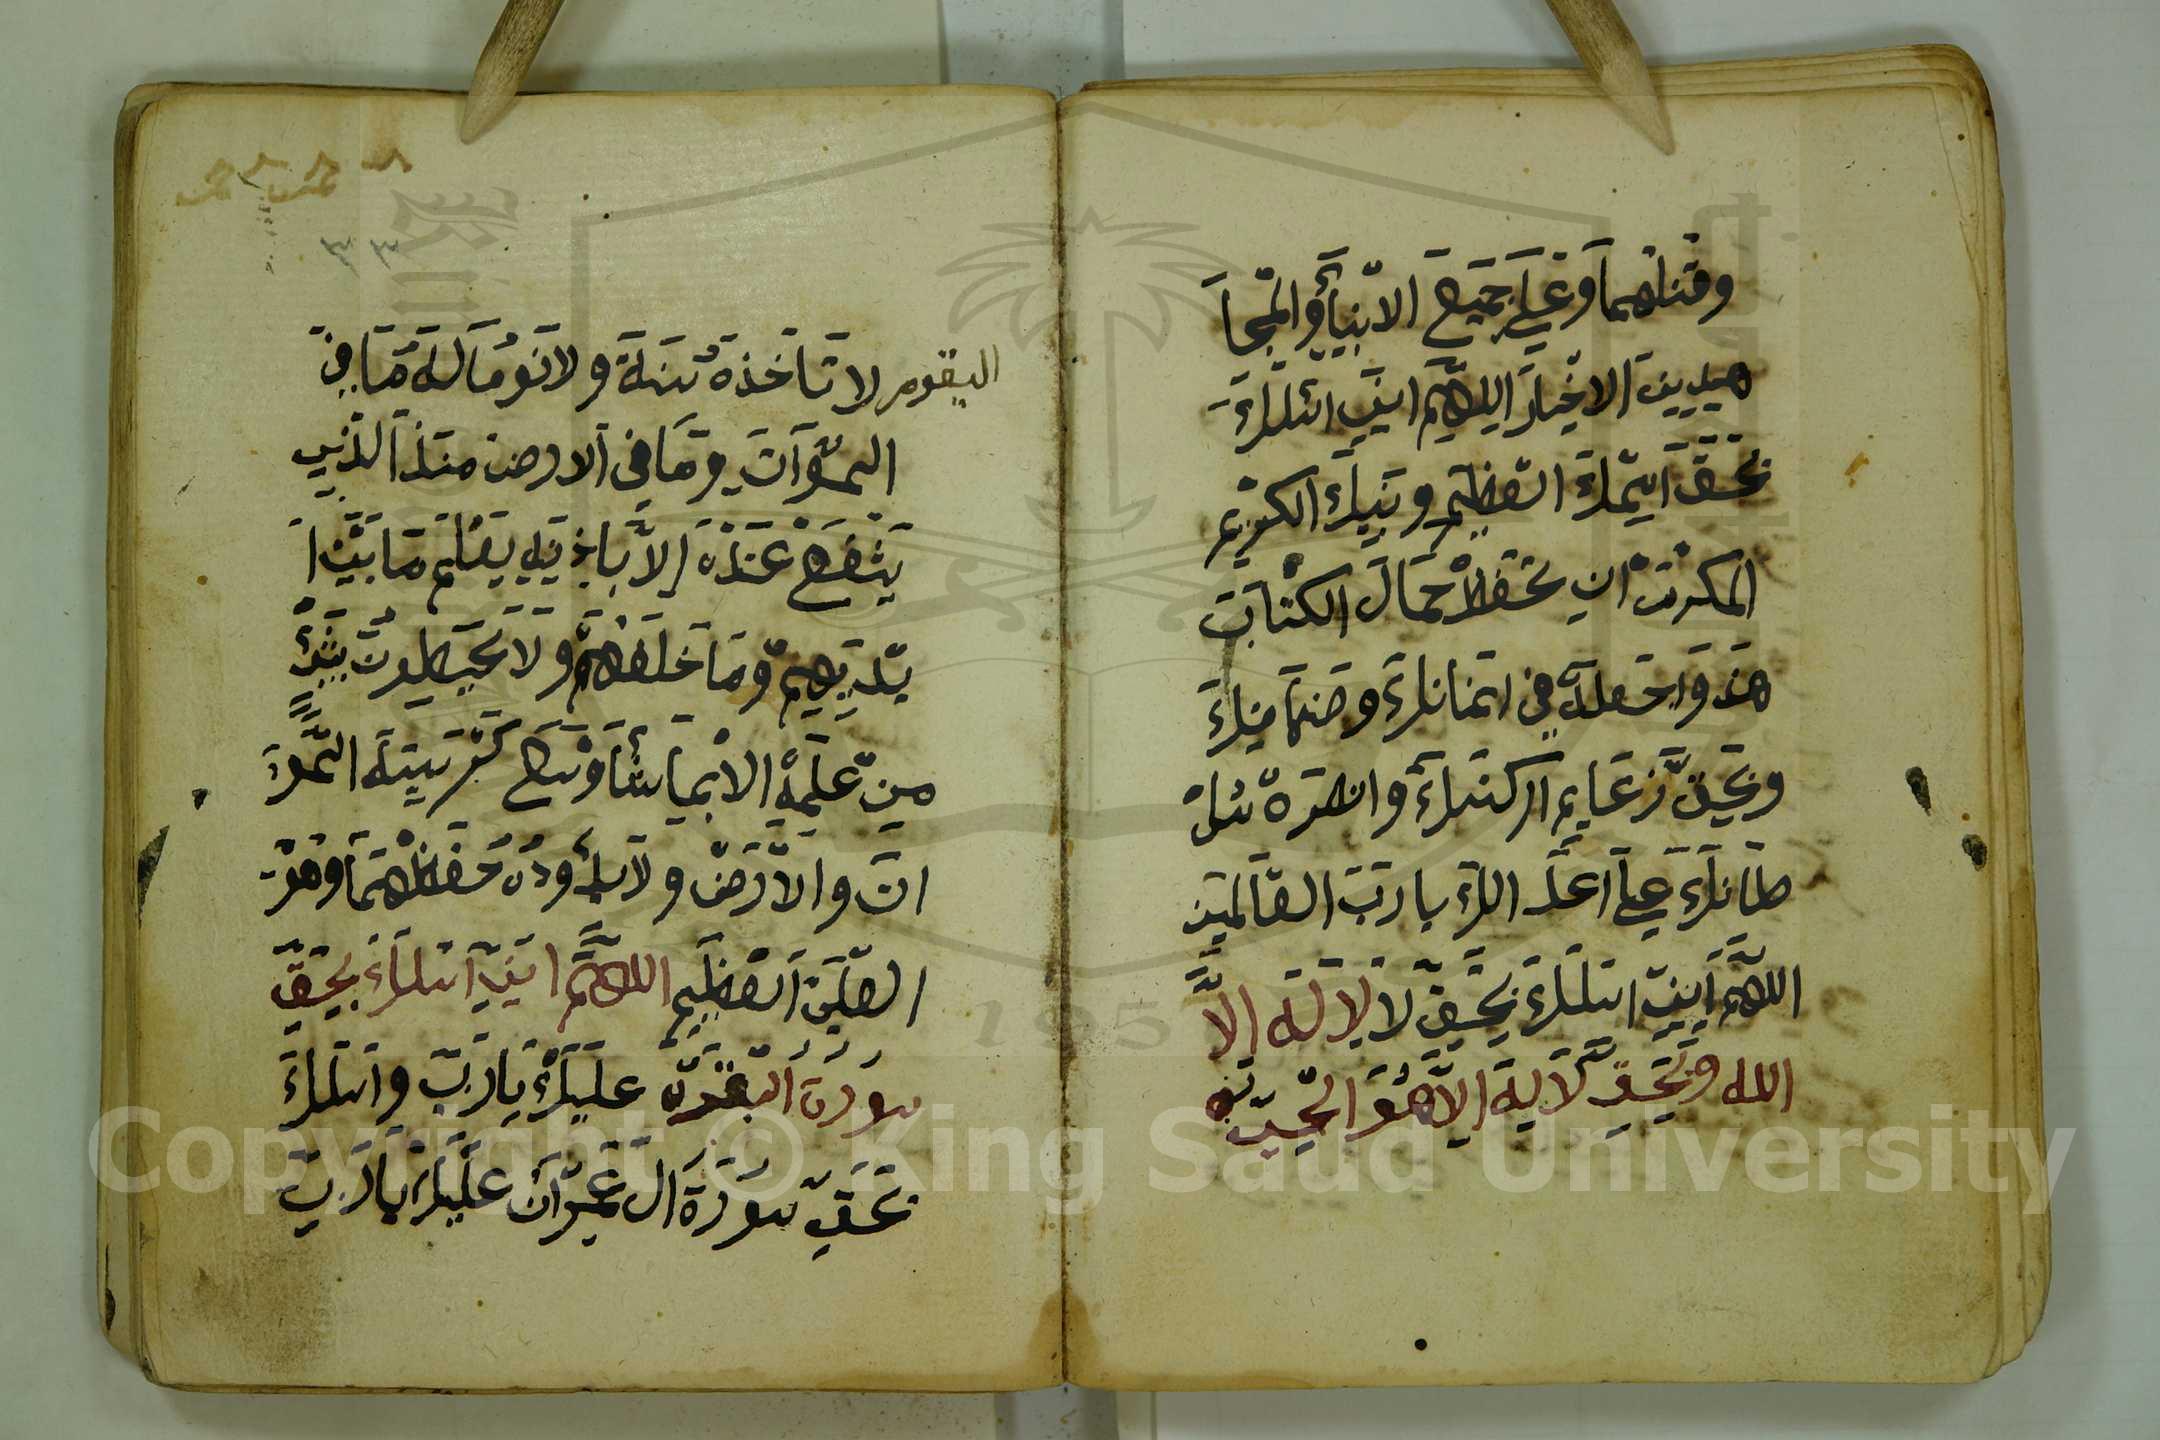 وفتلهما وعلي جميع الانبيآء والمجا
هيدين الاخيار اللهم اني اسئلك
بحق اسمك العظيم ونبيك الكريم
المكرمت ان تحفظ حمال الكتاب
هذ واجعله في امانك وضمامنك
وبحق زعايم اركنك وانصره سل
طانك علي اعد اك يا رب العالمين
اللهم اني اسئلك بحق لا الاله الا
الله وبحق لا اله الا هو الحي
اليقوم لا تاخذه سنة ولا نوم له ما في
السموات وما في الارض منذ الذي
يشفع عنده الا باذنه يعلم ما بين ا
يديهم وما خلفهم ولا يحيطون بشئ
من علمه الا بما شاء وسع كرسيه السمو
ات والارض ولا يئوده حفظهما وهو
العلي العظيم اللهم اني اسئلك بحق
سورة البقرة عليك يا رب واسئلك
بحق سورة ال عمران عليك يا رب
٣٣
Copyright © King Saud University
1957